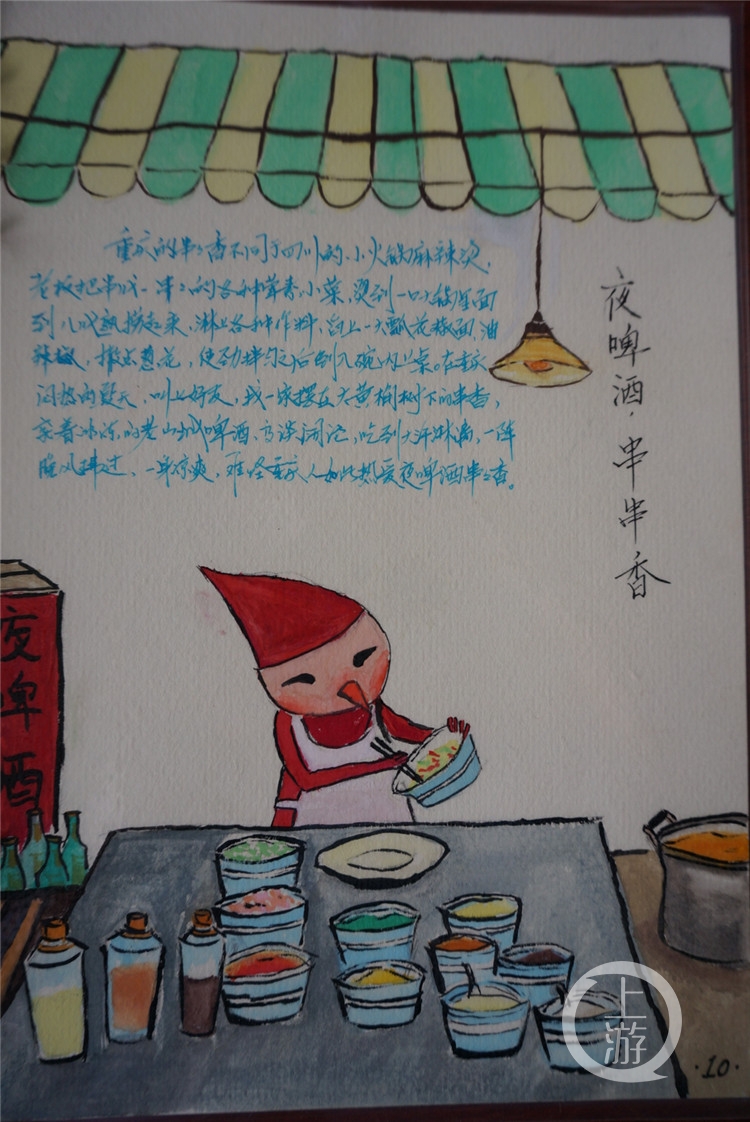 重庆的串串香不同于四川的小火锅麻辣烫,
老板把串成一串串的各种荤素小菜,烫到一口大锅里面
到八成熟捞起来,淋上各种作料,舀上一大瓢花椒面,油
辣椒,撒点葱花,使劲拌匀之后倒入碗内上桌。在重庆
闷热的夏天,叫上好友,找一家摆在大黄桷树下的串串香,
喝着冰冻的老山城啤酒,高谈阔论,吃到大汗淋漓,一阵
晚风拂过,一身凉爽,难怪重庆人如此热爱夜啤酒串串香。
夜啤酒,串串香
夜啤酒
上游
·10·